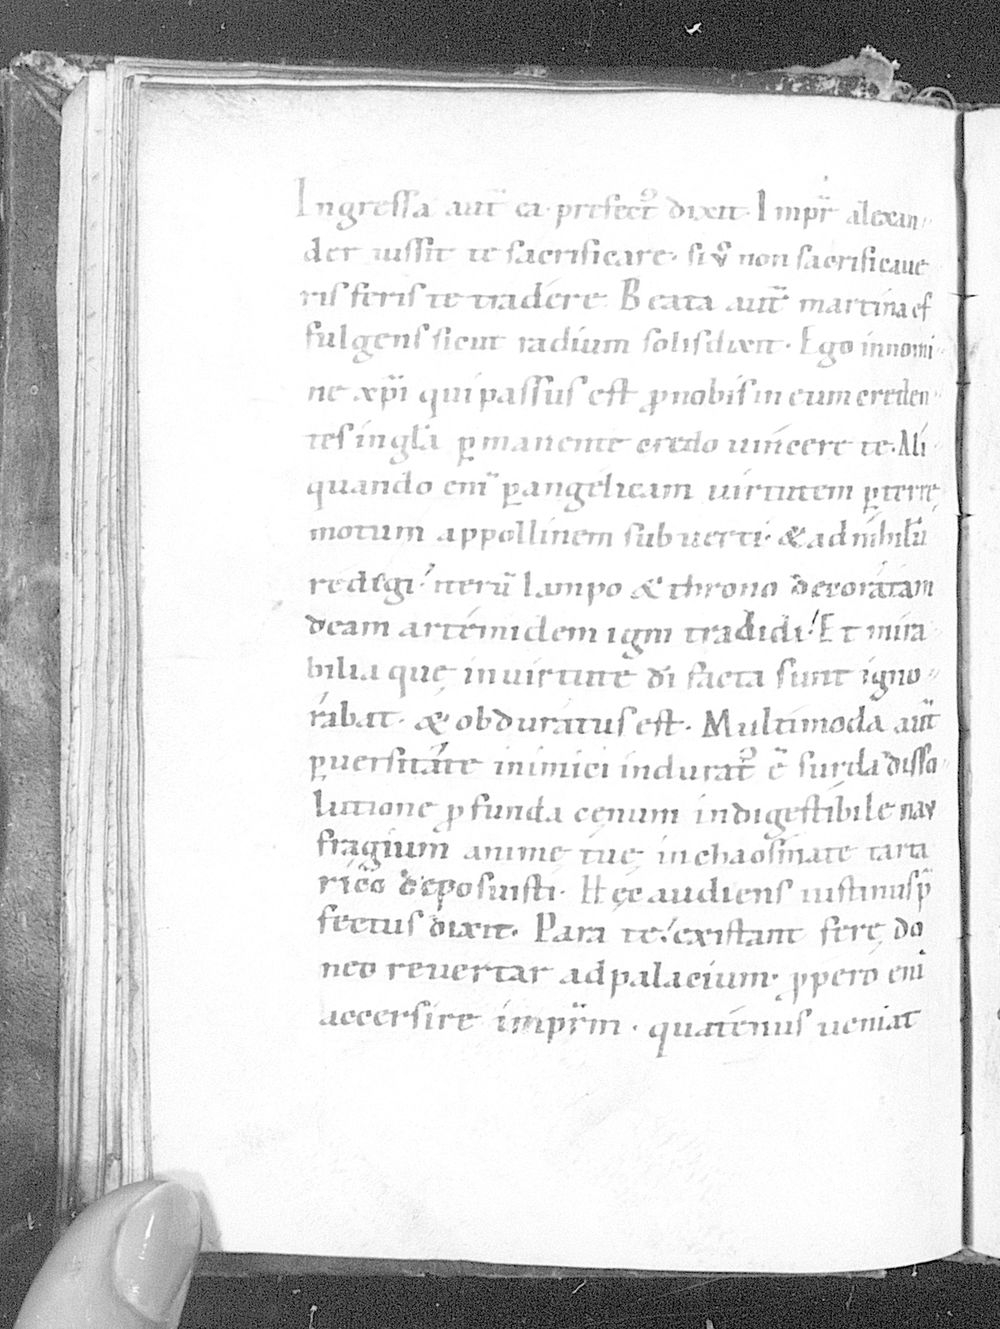 Ingressa aut̄ ea· prefect᷒ dixit· Imp̄r alexan-
der iussit te sacrificare· si v̊ non sacrificaue
ris feris te tradere Beata aut̄ martina ef
fulgens sicut radium solis dixit· Ego innomi-
ne xp̄i qui passus est ꝓ nobis in eum creden-
tes in gl̄a ꝑmanente credo uincere te· Ali-
quando eni̅ ꝑ angelicam uirtutem ꝑ terrę
motum appollinem subuerti· & ad nihilū
redigi· iterū lampo & throno deuoratam
deam artemidem igni tradidi· Et mira
bilia quę in uirtute di̅ facta sunt igno-
rabat· & obduratus est· Multimoda aut̄
ꝑuersitate inimici indurat᷒ ē surda disso-
lutione ꝓfunda cenum indigestibile nau
fragium animę tuę in chaos mate tarta
rico deposuisti· Hęc audiens iustinus p̄
fectus dixit· Para te· existant ferę do
nec reuertar ad palacium· ꝓpero eni̅
accersire imp̄rm · quatenus ueniat